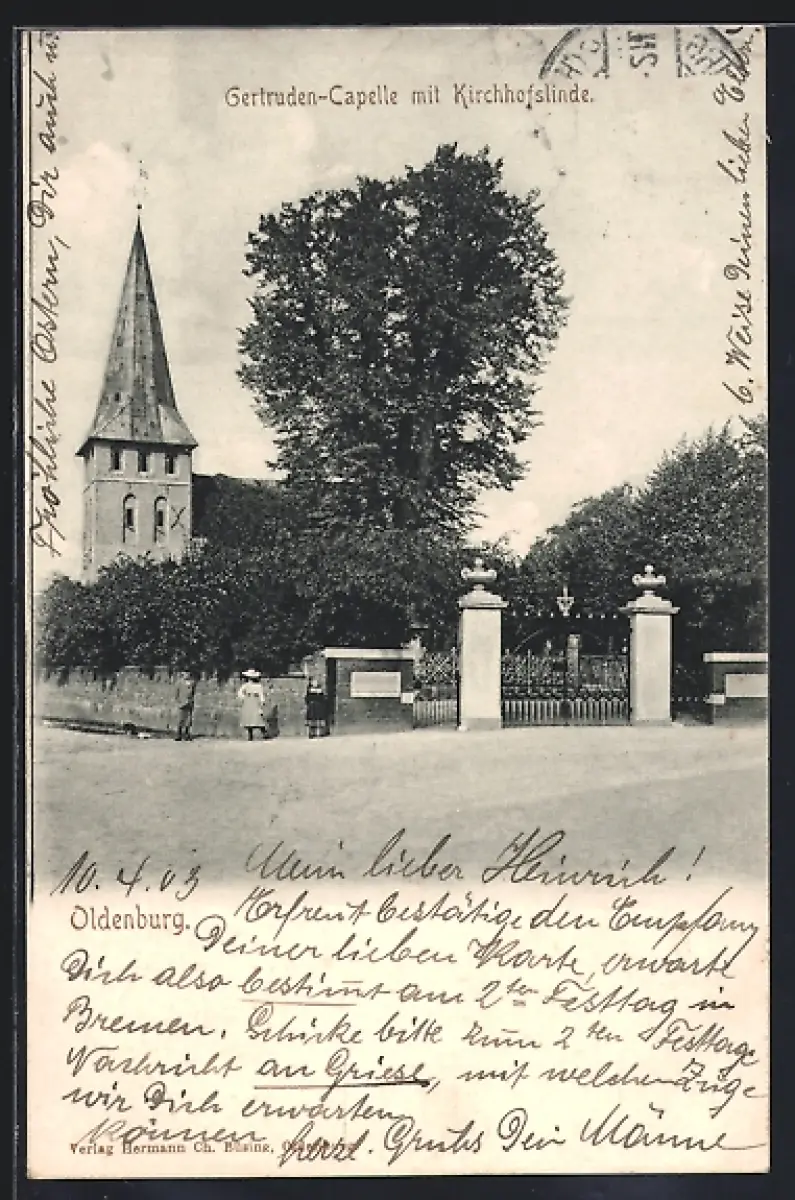 Gertruden-Capelle mit Kirchhofslinde.
10.4.03 Mein lieber Heinrich!
Oldenburg.
Erfreut bestätige den Empfang
Deiner lieben Karte, erwarte
Dich also bestimmt am 2ten Festtag in
Bremen. Schicke bitte zum 2ten Festtage
Nachricht an Griese, mit welchem Zuge
wir Dich erwarten
können herzl. Gruhs Dein Männe
Verlag Hermann Ch. Büsing,
Fröhliche Ostern, Dir auch u.
b. Weise Deinen lieben Eltern.